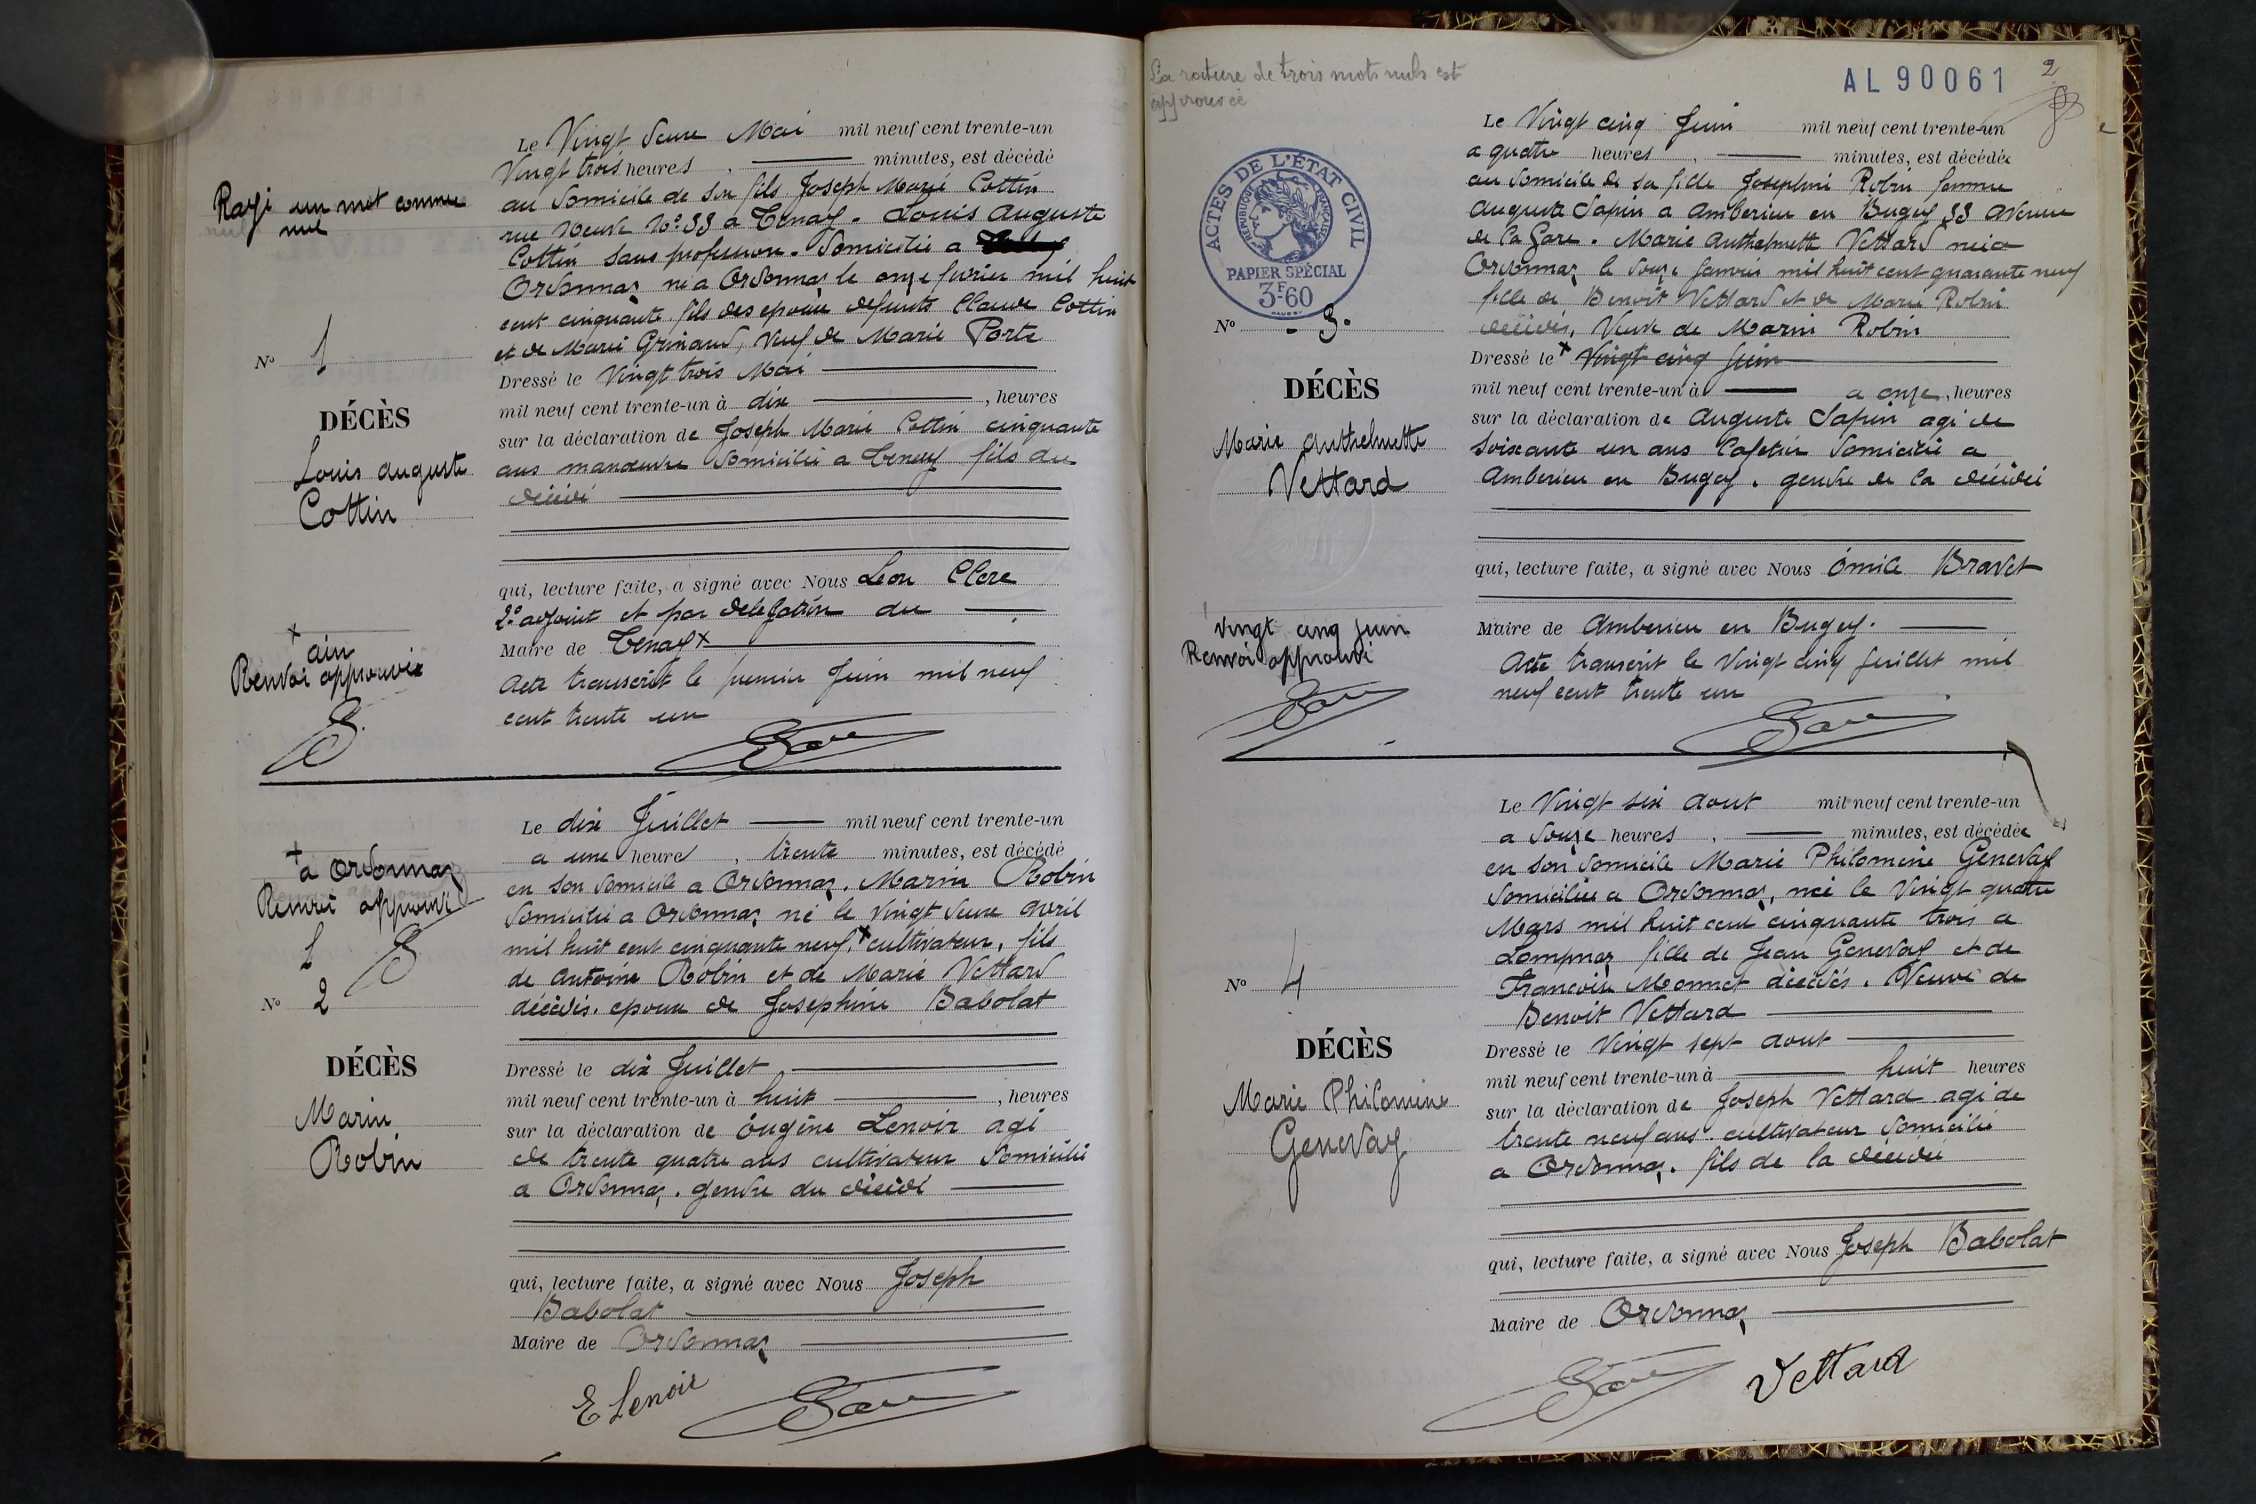 Rayé un mot comme
nul nul
Le Vingt deux Mai mil neuf cent trente-un
Vingt trois heures, minutes, est décédé
au domicile de son fils Joseph Marie Cottin
rue Neuve No 33 a Tenay. Louis Auguste
Cottin sans profession. Domicilié a
Ordonnaz né a Ordonnaz le onze fevrier mil huit
cent cinquante fils des epoux defunts Claude Cottin
et de Marie Grinand, Veuf de Marie Porte
No 1
DÉCÈS
Louis auguste
Cottin
Dressé le Vingt trois Mai
mil neuf cent trente-un à dix , heures
sur la déclaration de Joseph Marie Cottin cinquante
ans manœuvre domicilié a Tenay fils du
décédé
qui, lecture faite, a signé avec Nous Leon Clerc
2e adjoint et par délégation du
Maire de Tenay x
x ain
Renvoi approuvé
Acte transcrit le premier Juin mil neuf
cent trente un
x a Ordonnaz
Renvoi approuvé
1
No 2
DÉCÈS
Marin
Robin
Le dix Juillet mil neuf cent trente-un
a une heure, trente minutes, est décédé
en son domicile a Ordonnaz. Marin Robin
domicilié a Ordonnaz né le Vingt deux avril
mil huit cent cinquante neuf, x cultivateur, fils
de Antoine Robin et de Marie Vettard
décédés. epoux de Josephine Babolat
Dressé le dix Juillet
mil neuf cent trente-un à huit , heures
sur la déclaration de Eugène Lenoir agé
de trente quatre ans cultivateur domicilié
a Ordonnaz. gendre du décédé
qui, lecture faite, a signé avec Nous Joseph
Babolat
Maire de Ordonnaz
E Lenoir
La rature de trois mots nuls est
approuvée
AL 90061
2
ACTES DE L'ÉTAT CIVIL
RÉPUBLIQUE FRANÇAISE
PAPIER SPÉCIAL
3F60
No - 3.
DÉCÈS
Marie Anthelmette
Vettard
Vingt cinq juin
Renvoi approuvé
Le Vingt cinq Juin mil neuf cent trente-un
a quatre heures, minutes, est décédée
au domicile de sa fille Josephine Robin femme
Auguste Sapin a Amberieu en Bugey 33 avenue
de la Gare. Marie Anthelmette Vettard née a
Ordonnaz le douze Janvier mil huit cent quarante neuf
fille de Benoît Vettard et de Marie Robin
décédés, Veuve de Marin Robin
Dressé le x Vingt cinq Juin
mil neuf cent trente-un à a onze, heures
sur la déclaration de Auguste Sapin agé de
soixante un ans Cafetier domicilié a
Amberieu en Bugey. gendre de la décédée
qui, lecture faite, a signé avec Nous Émile Bravet
Maire de Amberieu en Bugey.
Acte transcrit le Vingt cinq Juillet mil
neuf cent trente un
No 4
DÉCÈS
Marie Philomène
Genevay
Le Vingt six aout mil neuf cent trente-un
a douze heures, minutes, est décédée
en son domicile Marie Philomène Genevay
domiciliée a Ordonnaz, née le Vingt quatre
Mars mil huit cent cinquante trois a
Lompnaz fille de Jean Genevay et de
Françoise Monnet décédés. Veuve de
Benoit Vettard
Dressé le Vingt sept aout
mil neuf cent trente-un à huit heures
sur la déclaration de Joseph Vettard agé de
trente neuf ans cultivateur domicilié
a Ordonnaz. fils de la décédée
qui, lecture faite, a signé avec Nous Joseph Babolat
Maire de Ordonnaz
Vettard